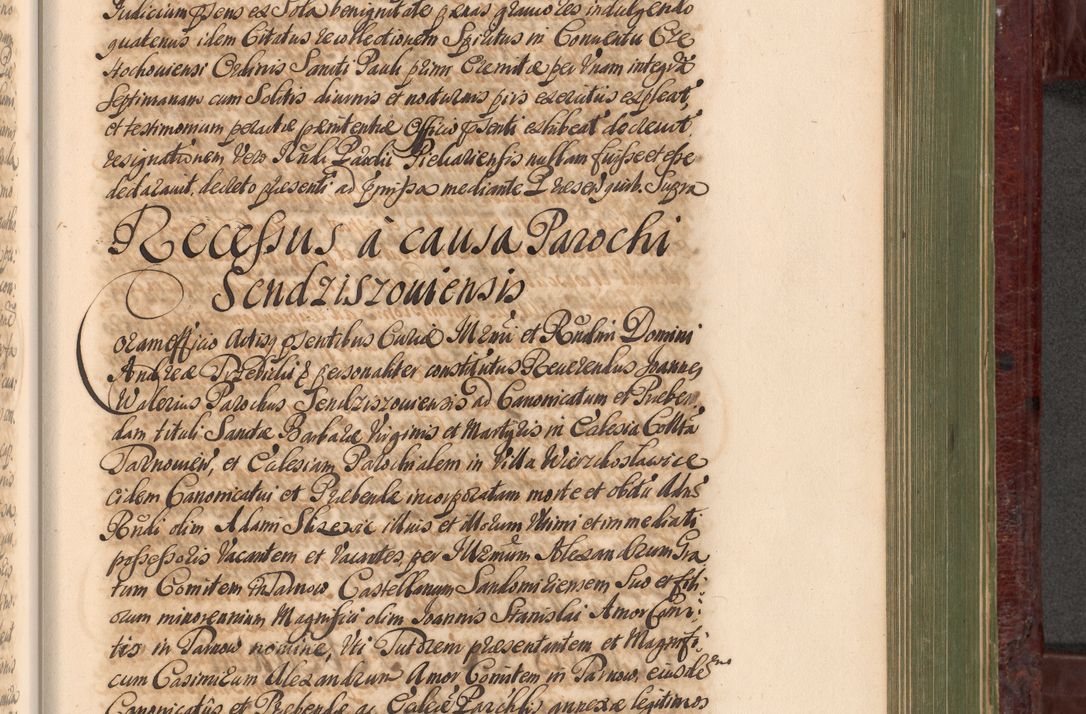 Judicium p̃sens ex Sola benignitate pænas graviores indulgendo
quatenus idem Citatus recollectionem Spiritus in Conventu Cze
stochoviensi Ordinis Sancti Pauli primi Eremitæ per Vnam integrã
Septimanam cum Solitis diurnis et nocturnis pijs exercitijs expleat,
et testimonium peractæ pænitentiæ Officio p̃senti exhibeat decrevit
resignationem Vero Rñdi Pardii nullam fuisse et esse
declaravit, decreto præsenti ad p̃missa mediante Præsen̄ quib. Supra
Recessus à causa Parochi
Sendziszoviensis
Coram officio Actisq præsentibus Curiæ Illrmi et Rñdmi Domini
Andreæ personaliter constitutus Reverendus Joannes
Walerius Parochus Sendziszoviensis ad Canonicatum et Præben
dam tituli Sanctæ Barbaræ Virginis et Martyris in Ecclesia Colltã
Tarnovien̄, et Ecclesiam Parochialem in Villa Wierzchoslawice
eidem Canonicatui et Præbendæ incorporatam morte et obitu Adm̄
Rñdi olim Adami illius et illorum Vltimi et immediati
possessoris Vacantem et Vacantes, per Illrmum Alexandrum Gra
tum Comitem in Tarnow Castellanum Sandomiriensem Suo et fili
orum minorennium Magnifici olim Joannis Stanislai Amor Comi
tis in Tarnow nomine, Vti Tutorem præsentantem et Magnifi
cum Casimirum Alexandrum Amor Comitem in Tarnow, eiusdem
Canonicatus et Præbendæ ac Ecclæ Parchlis annexæ legitimos